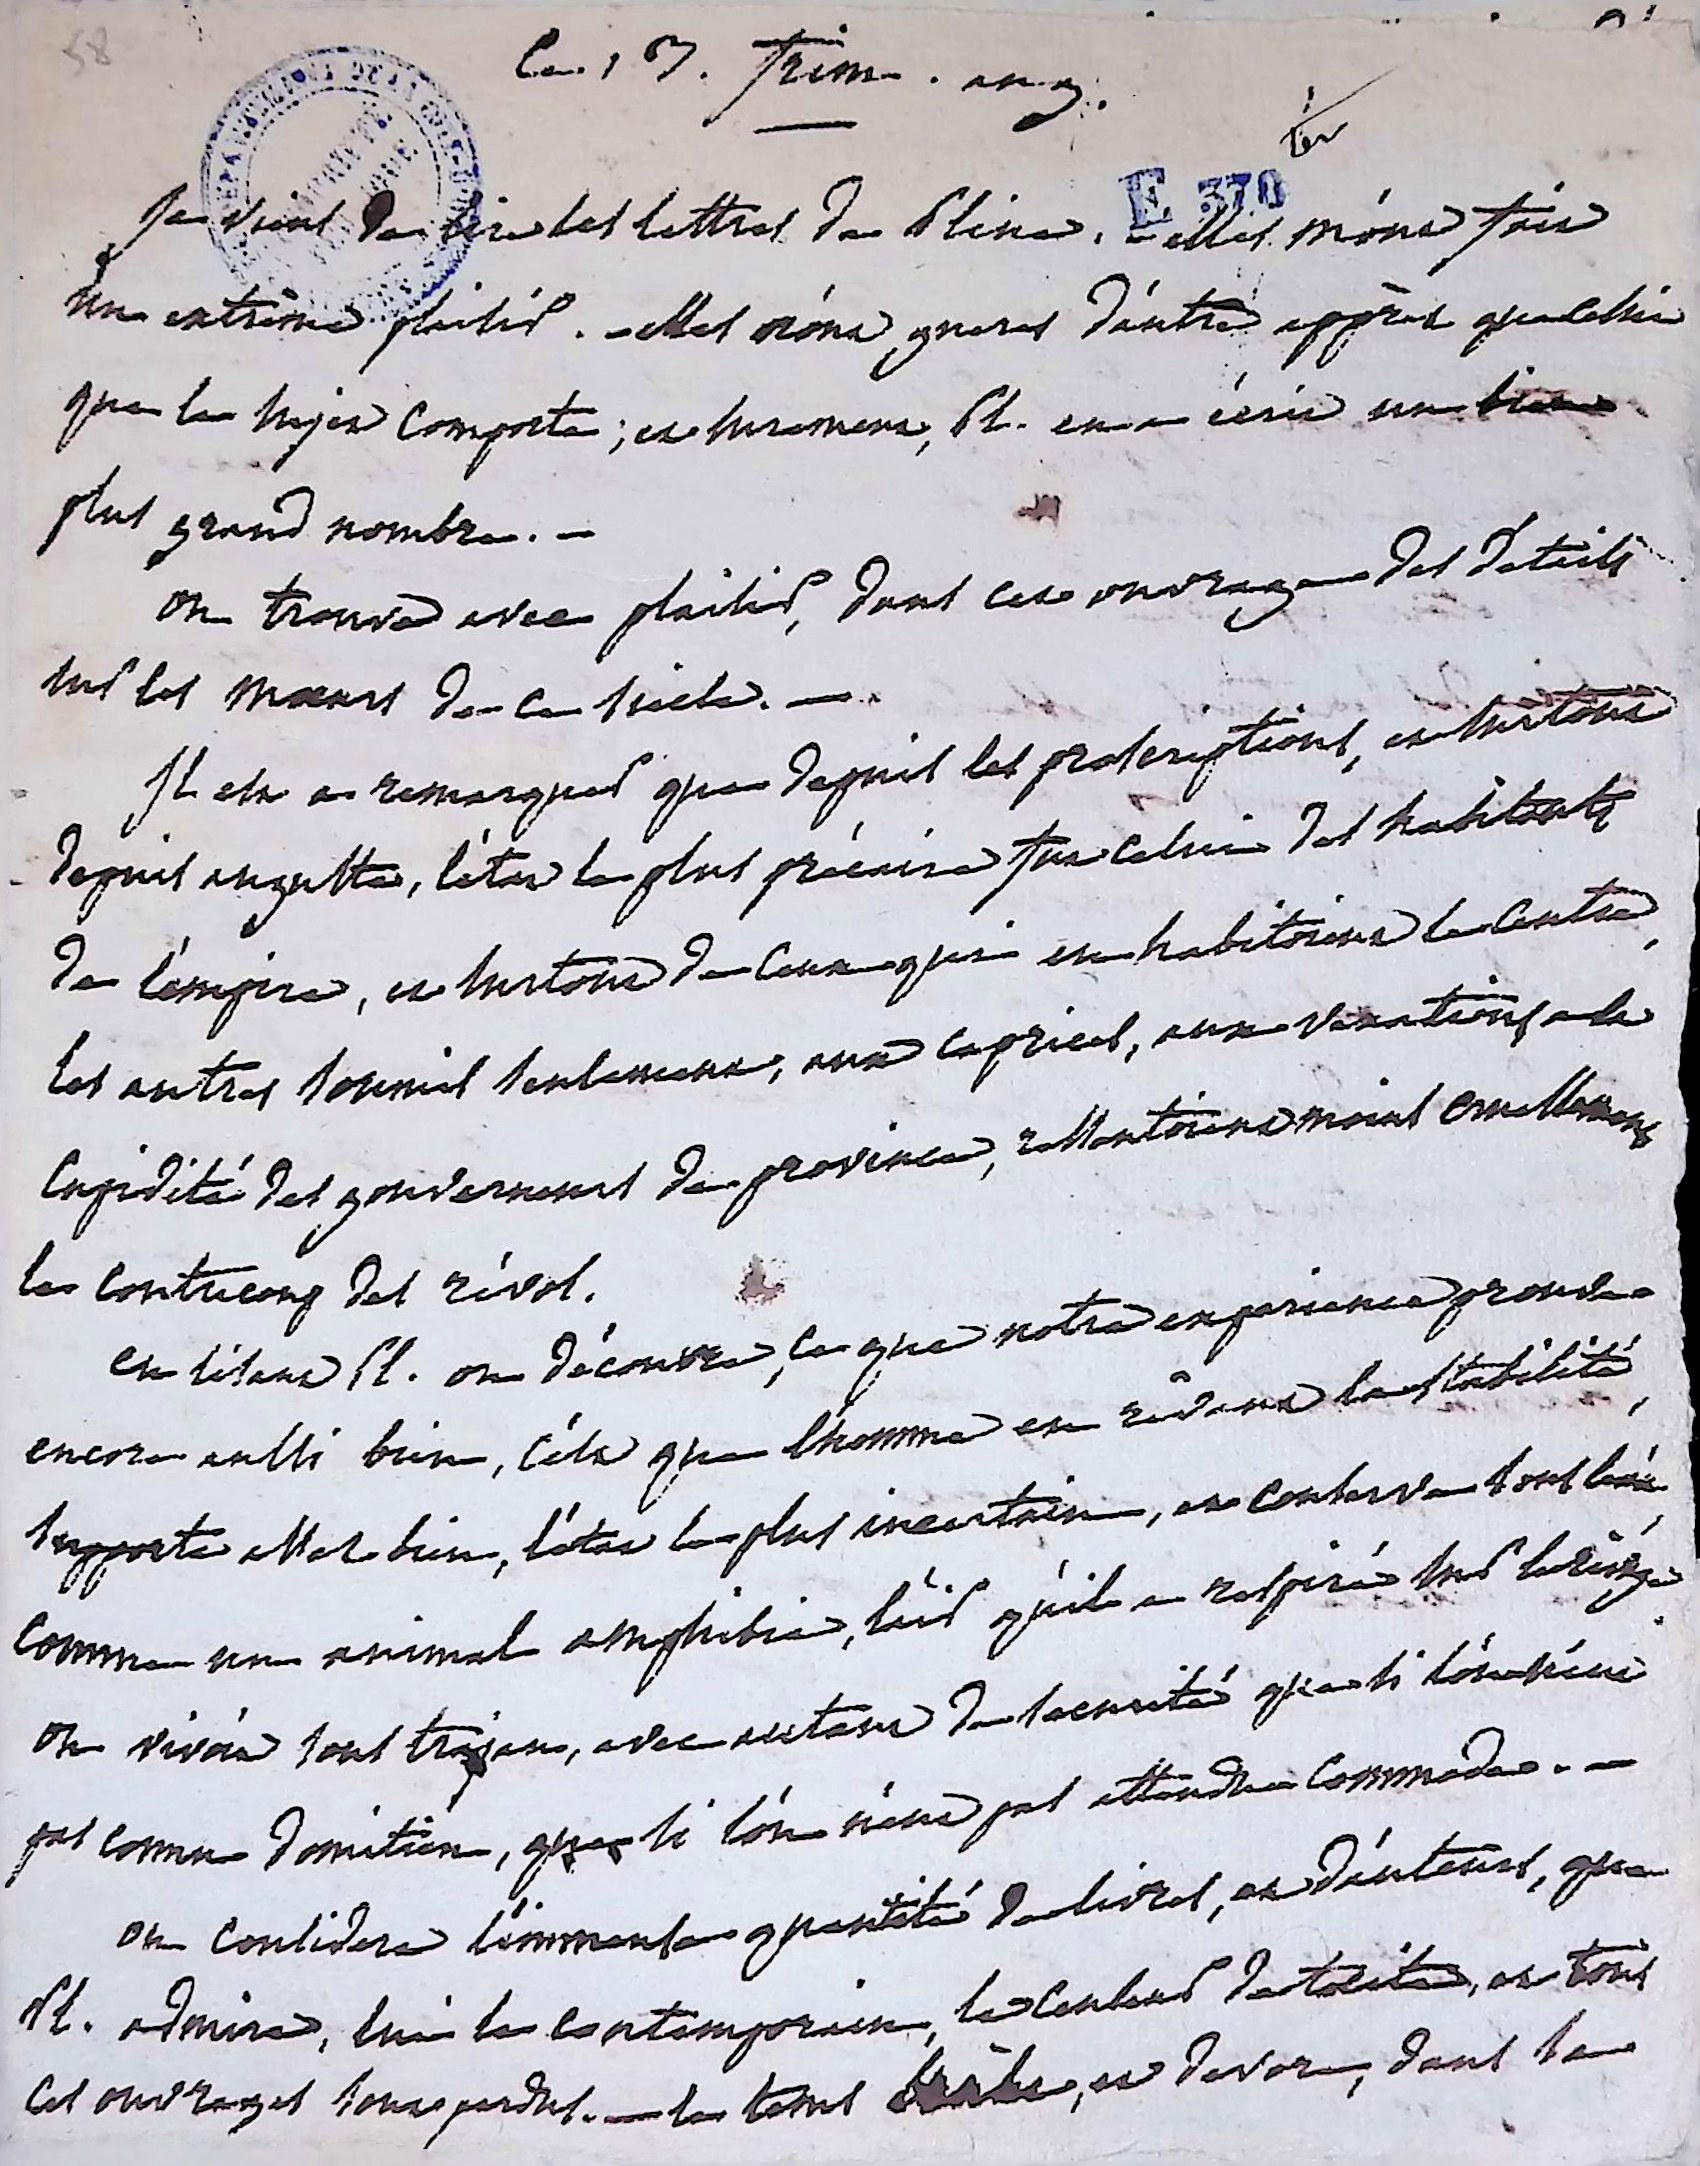 58
Ce 17. frim. an 9.
ter
E 370
Je viens de lire les lettres de Pline. - elles m'ont fait
un extrême plaisir. - elles n'ont gueres d'autre apprêt que celui
que le sujet comporte; et surement, Pl. en a écrit un bien
plus grand nombre. -
on trouve avec plaisir, dans cet ouvrage des détails
sur les mœurs de ce siecle. -
Il est a remarquer que depuis les proscriptions, et surtout
depuis auguste, l'état le plus précaire fut celui des habitants
de l'empire, et surtout de ceux qui en habitoient le centre,
les autres soumis seulement, aux caprices, aux vexations a la
cupidité des gouverneurs de province, ressentoient moins cruellement
le contrecoup des révol.
en lisant Pl. on découvre, ce que notre experience prouve
encore aussi bien, c'est que l'homme en rêvant la stabilité,
supporte assez bien, l'état le plus incertain, et conserve sous l'eau
comme un animal amphibie, l'air qu'il a respiré sur le rivage
on vivoit sous trajan, avec autant de securité que si l'on n'eut
pas connu domitien, que si l'on n'eut pas attendu commode. -
on considere l'immense quantité de livres, et d'auteurs, que
Pl. admire, lui le contemporain, le censeur de tacite, et tous
ces ouvrages sont perdus. - le tems, et devore, dans sa